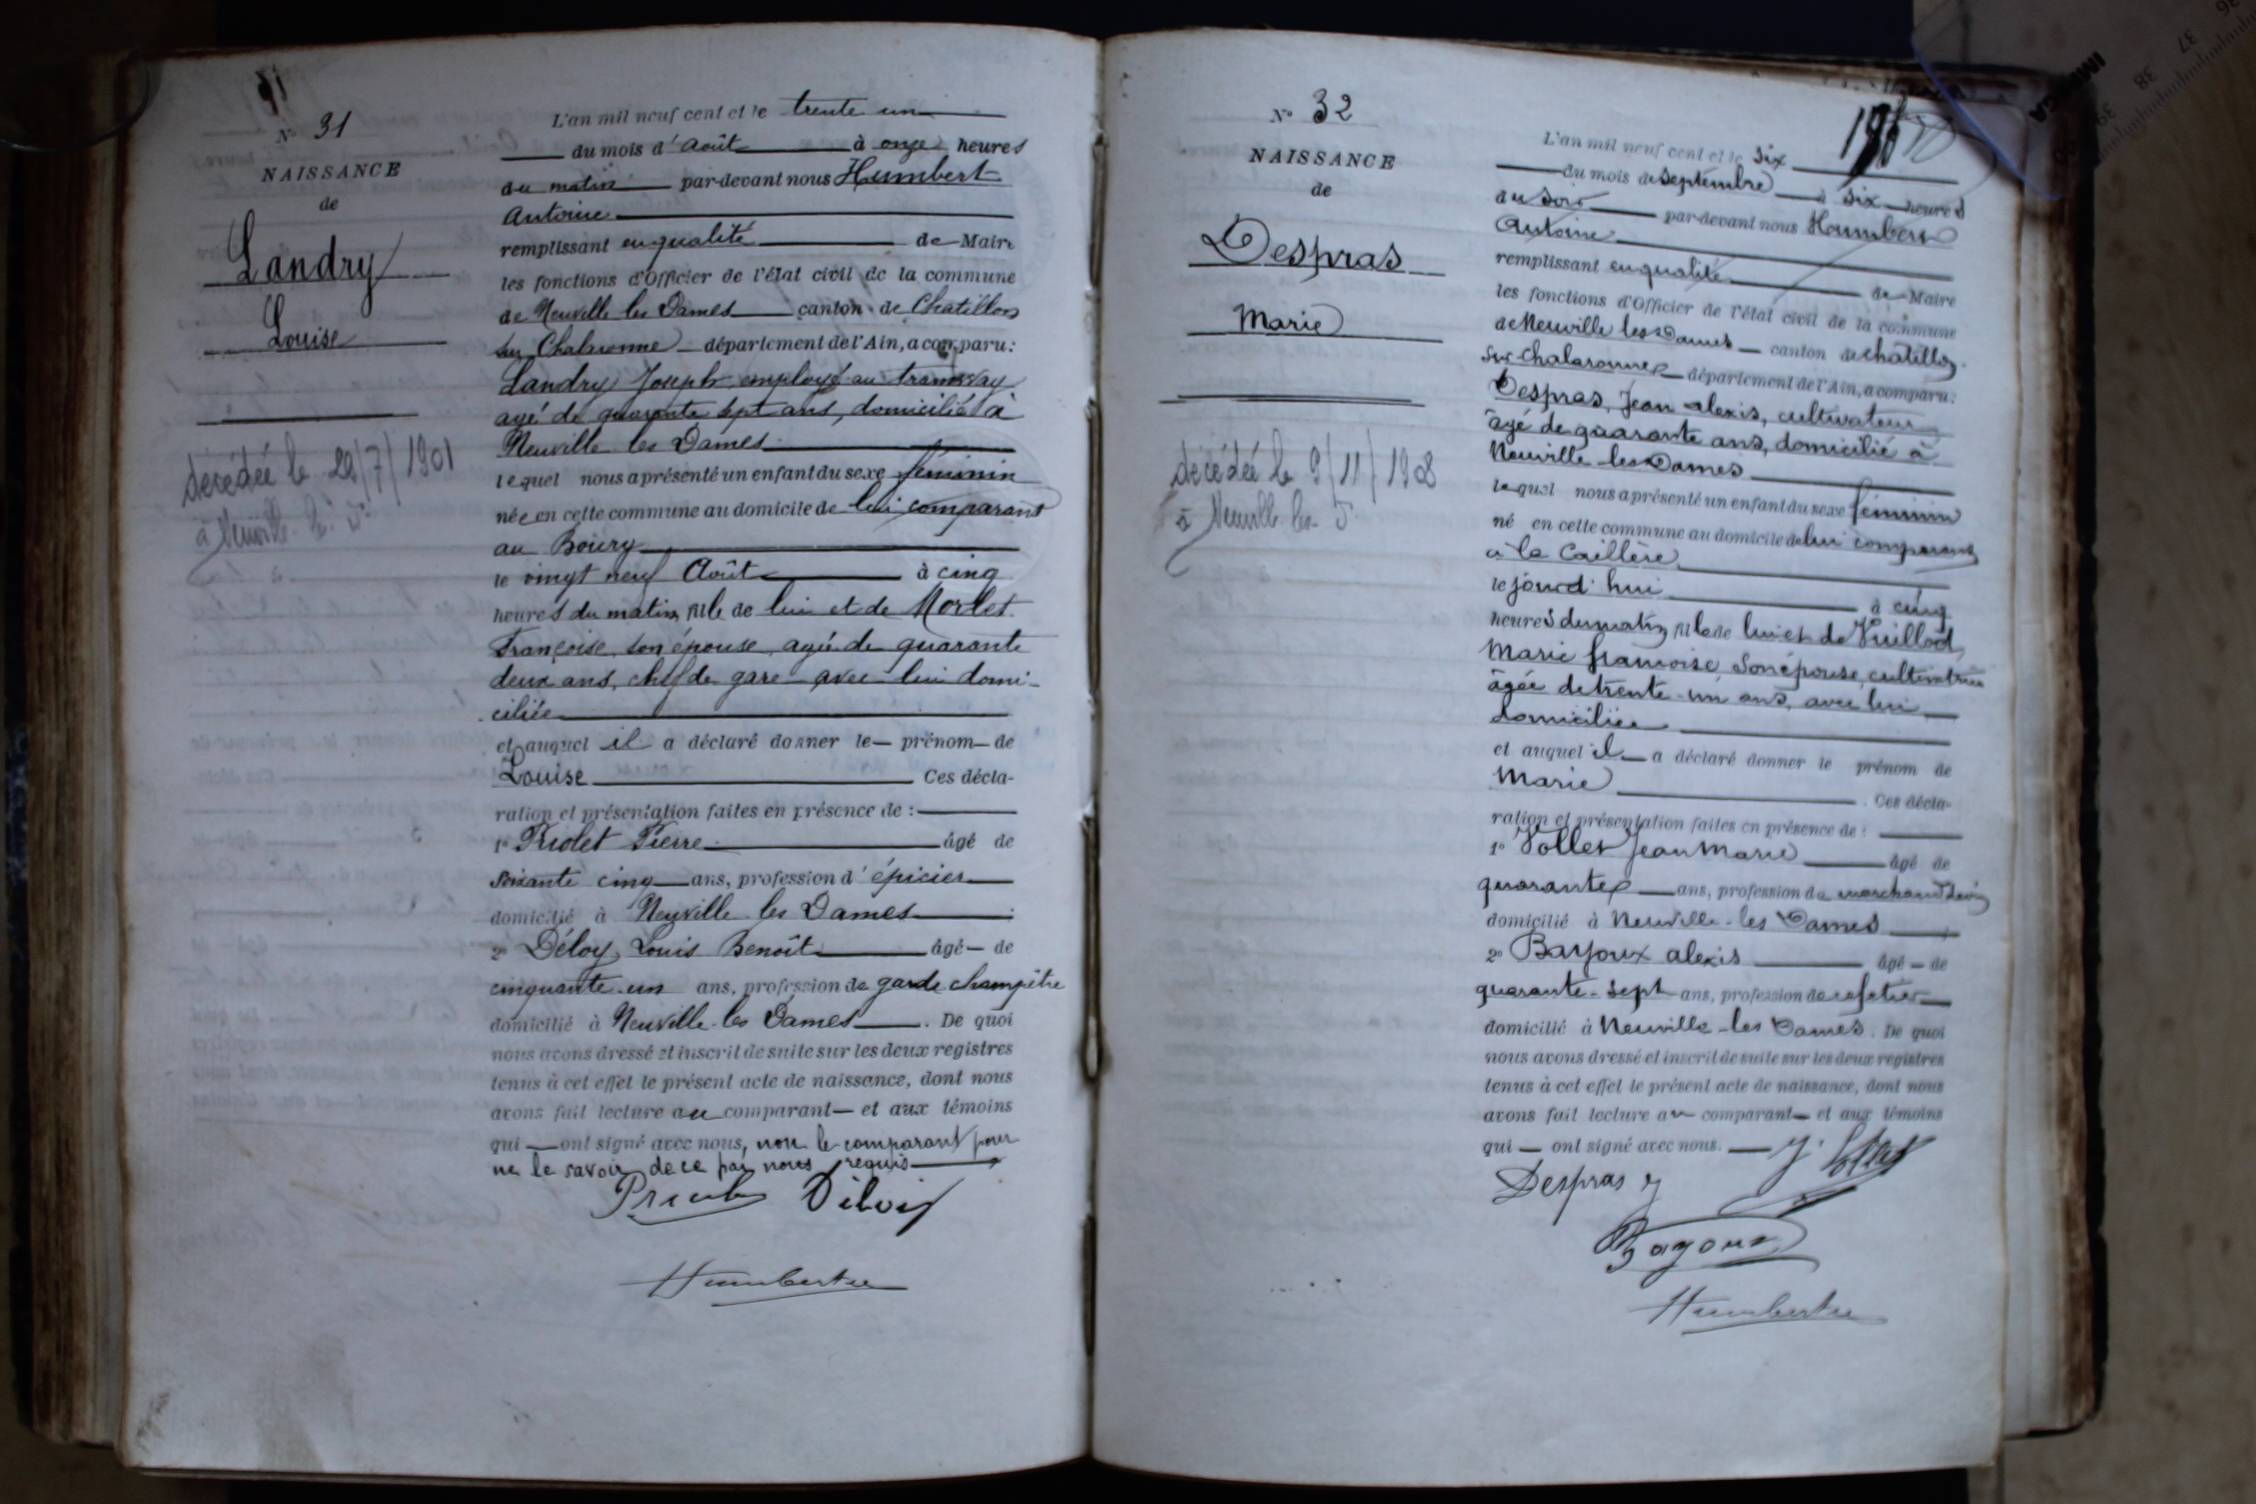 N° 31
NAISSANCE
de
Landry
Louise
décédée le 29/7/1901
à Neuville-les-D
L'an mil neuf cent et le trente un
du mois d'Août à onze heures
du matin par-devant nous Humbert
Antoine
remplissant en qualité de Maire
les fonctions d'Officier de l'état civil de la commune
de Neuville les Dames canton de Chatillon
sur Chalaronne département de l'Ain, a comparu:
Landry Joseph employé au tramway
agé de quarante sept ans, domicilié à
Neuville les Dames
lequel nous a présenté un enfant du sexe féminin
née en cette commune au domicile de lui comparant
au Bourg
le vingt neuf Août à cinq
heures du matin, fille de lui et de Morlet
Françoise, son épouse, agée de quarante
deux ans, chef de gare avec lui domi-
ciliée
et auquel il a déclaré donner le prénom de
Louise Ces décla-
ration et présentation faites en présence de :
1° Priolet Pierre âgé de
soixante cinq ans, profession d'épicier
domicilié à Neuville les Dames
2° Déloy Louis Benoît âgé de
cinquante un ans, profession de garde champêtre
domicilié à Neuville les Dames. De quoi
nous avons dressé et inscrit de suite sur les deux registres
tenus à cet effet le présent acte de naissance, dont nous
avons fait lecture au comparant et aux témoins
qui ont signé avec nous, non le comparant pour
ne le savoir de ce par nous requis
Humbert
N° 32
NAISSANCE
de
Despras
Marie
décédée le 9/11/1908
à Neuville-les-D
L'an mil neuf cent et le six
du mois de septembre à six heures
du soir par-devant nous Humbert
Antoine
remplissant en qualité de Maire
les fonctions d'Officier de l'état civil de la commune
de Neuville les Dames canton de chatillon
sur-chalaronne département de l'Ain, a comparu:
Despras, Jean alexis, cultivateur
âgé de quarante ans, domicilié à
Neuville-les-Dames
lequel nous a présenté un enfant du sexe féminin
né en cette commune au domicile de lui comparant
à la Caillère
le jourd'hui à cinq
heures du matin, fille de lui et de Vuillod
Marie françoise, son épouse, cultivatrice
âgée de trente-un ans, avec lui
domiciliée
et auquel il a déclaré donner le prénom de
Marie Ces décla-
ration et présentation faites en présence de :
1° Vollet Jean Marie âgé de
quarante ans, profession de marchand de vin
domicilié à Neuville-les Dames
2° Bayoux alexis âgé de
quarante-sept ans, profession de cafetier
domicilié à Neuville-les Dames. De quoi
nous avons dressé et inscrit de suite sur les deux registres
tenus à cet effet le présent acte de naissance, dont nous
avons fait lecture au comparant et aux témoins
qui ont signé avec nous.
Despras J
Bayoux
Humbert